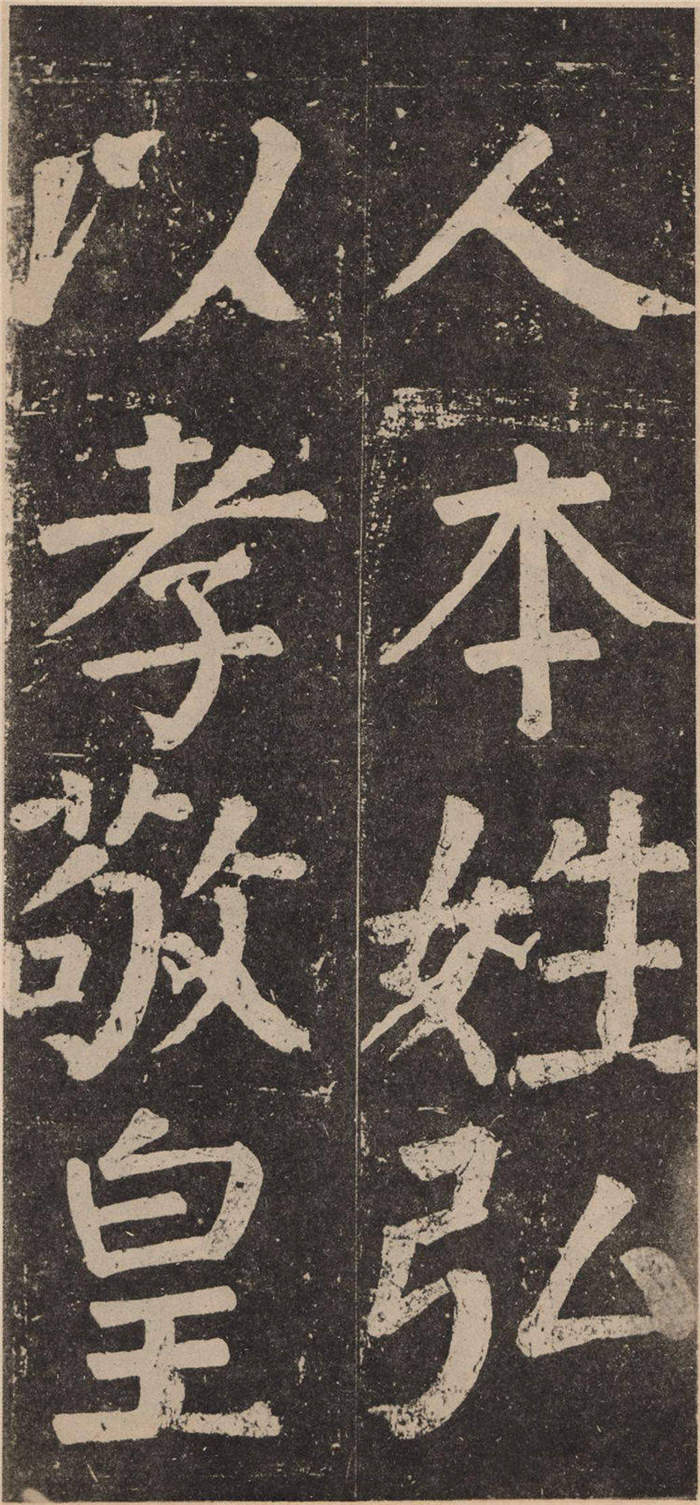 人本姓弘
以孝敬皇